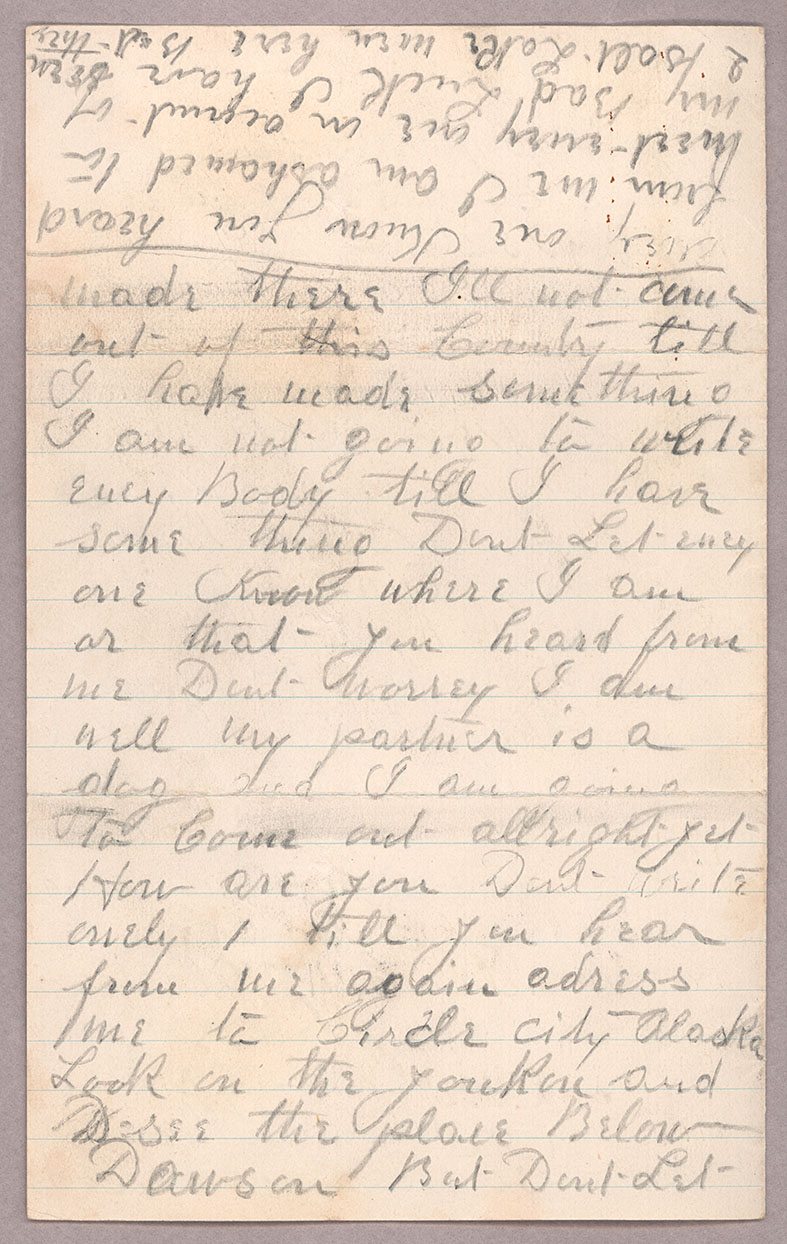 made there Ill not come
out of this Country till
I have made something
I am not going to write
eney Body till I have
some thing Dont Let eney
one Know where I am
or that you heard from
me Dont Worrey I am
well my partner is a
dog and I am going
to Come out allright yet
How are you Dont write
onely 1 till you hear
from me again adress
me to Circle city Alaska
Look on the youkon and
see the place Below
Dawson But Dont Let
eney one Know you heard
from me I am ashamed to
meet eney one on acount of
my Bad Luck I have seen
2 Salt Lake men here